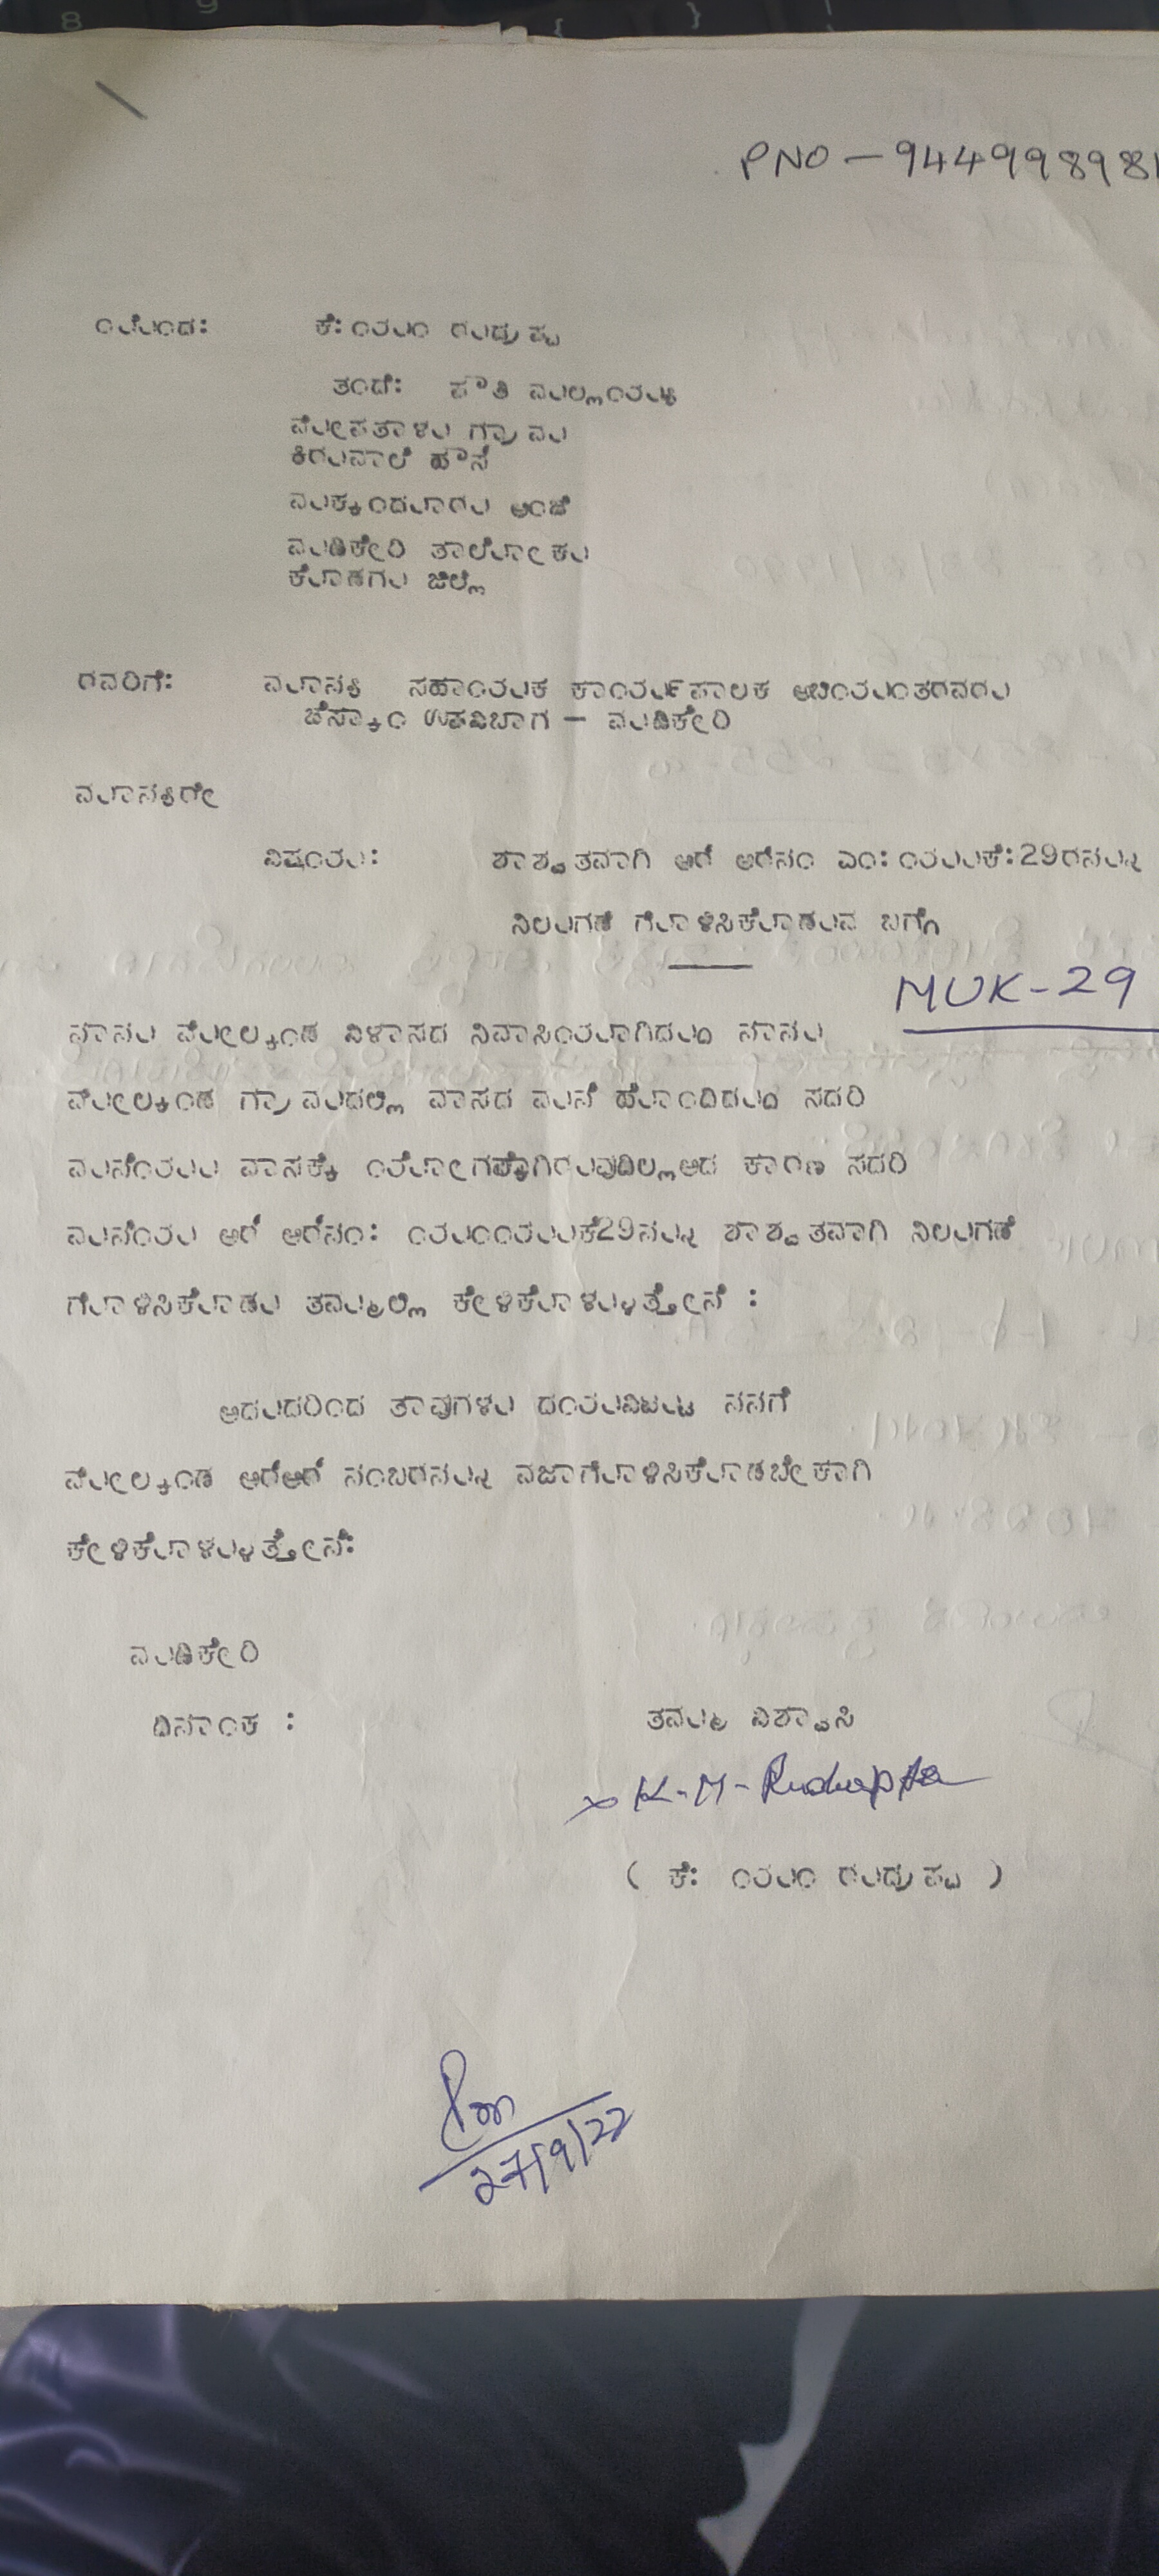 PNO - 944998981
ಯಿಂದ: ಕೆ: ಯಂ ರುದ್ರುಪ್ಪ
ತಂದೆ: ಪೌತಿ ಮಲ್ಲಯ್ಯ
ಮೇಪತಾಳು ಗ್ರಾಮ
ಕಿರುವಾಲೆ ಹೌಸೆ
ಮಕ್ಕಂದೂರು ಅಂಚೆ
ಮಡಿಕೇರಿ ತಾಲೋಕು
ಕೊಡಗು ಜಿಲ್ಲೆ
ರವರಿಗೆ: ಮಾನ್ಯ ಸಹಾಯಕ ಕಾರ್ಯಪಾಲಕ ಅಬಿಯಂತರವರು
ಚೆಸ್ಕಾಂ ಉಪವಿಬಾಗ — ಮಡಿಕೇರಿ
ಮಾನ್ಯರೇ
ವಿಷಯ: ಶಾಶ್ವತವಾಗಿ ಆರೆ ಆರೆನಂ ಎಂ: ಯುಕೆ:29ರನ್ನು
ನಿಲುಗಡೆ ಗೊಳಿಸಿಕೊಡುವ ಬಗ್ಗೆ
MUK-29
ನಾನು ಮೇಲ್ಕಂಡ ವಿಳಾಸದ ನಿವಾಸಿಯಾಗಿದ್ದು ನಾನು
ಮೇಲ್ಕಂಡ ಗ್ರಾಮದಲ್ಲಿ ವಾಸದ ಮನೆ ಹೊಂದಿದ್ದು ಸದರಿ
ಮನೆಯು ವಾಸಕ್ಕೆ ಯೋಗ್ಯಕ್ಕಾಗಿರುವುದಿಲ್ಲಆದ ಕಾರಣ ಸದರಿ
ಮನೆಯ ಆರೆ ಆರೆನಂ: ಯಂಯುಕೆ29ನ್ನು ಶಾಶ್ವತವಾಗಿ ನಿಲುಗಡೆ
ಗೊಳಿಸಿಕೊಡು ತಮ್ಮಲ್ಲಿ ಕೇಳಿಕೊಳ್ಳುತ್ತೇನೆ :
ಆದುದರಿಂದ ತಾವುಗಳು ದಯವಿಟ್ಟು ನನಗೆ
ಮೇಲ್ಕಂಡ ಆರೆಆರೆ ನಂಬರನ್ನು ವಜಾಗೊಳಿಸಿಕೊಡಬೇಕಾಗಿ
ಕೇಳಿಕೊಳ್ಳುತ್ತೇನೆ:
ಮಡಿಕೇರಿ
ದಿನಾಂಕ : ತಮ್ಮ ವಿಶ್ವಾಸಿ
K-M-Rudrappa
( ಕೆ: ಯಂ ರುದ್ರುಪ್ಪ )
27/9/22